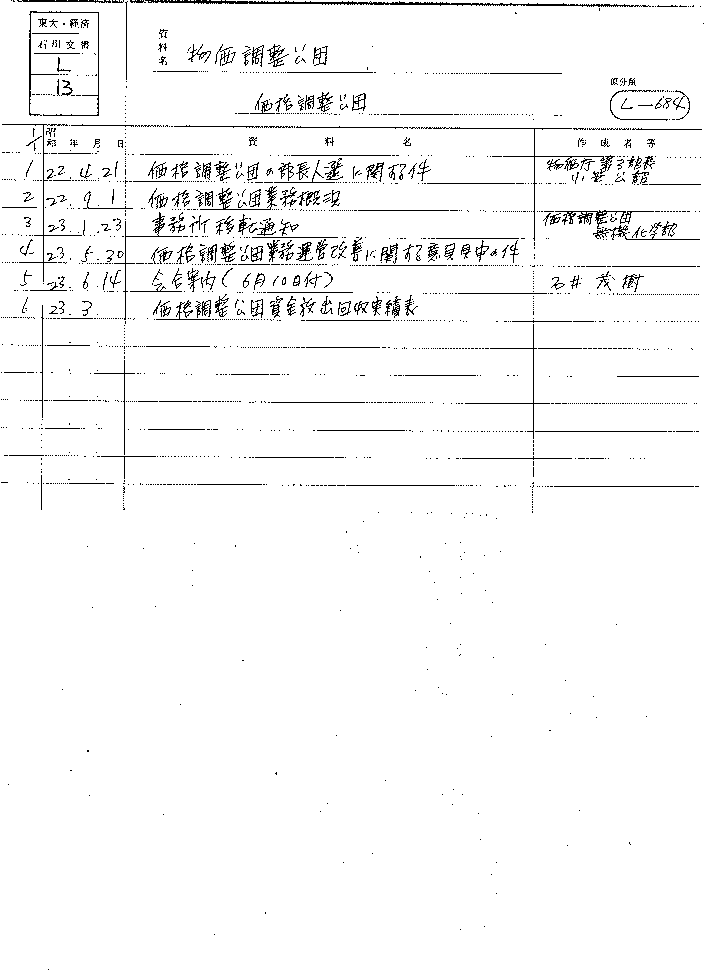 東大・経済
石川文書
L
13
資料名
物価調整公団
価格調整公団
原分類
L-684
昭和 年 月 日 資料名 作成者等
1 22.4.21 価格調整公団の部長人選に関する件 物価庁第3部長
2 22.9.1 価格調整公団業務概況
3 23.1.23 事務所移転通知 価格調整公団
無機化学部
4 23.5.30 価格調整公団業務運営改善に関する意見具申の件
5 23.6.14 会合案内(6月10日付) 石井茂樹
6 23.3 価格調整公団資金放出回収実績表